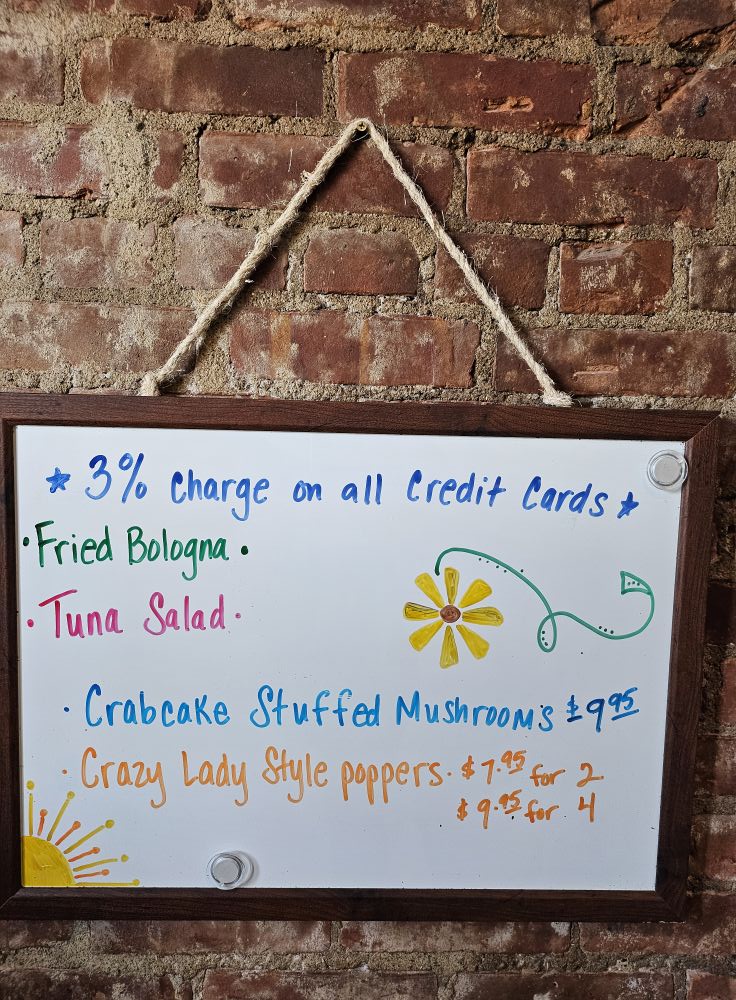 ★ 3% Charge on all Credit Cards ★
• Fried Bologna •
• Tuna Salad •
• Crabcake Stuffed Mushrooms $9.95
• Crazy Lady Style poppers • $7.95 for 2
$9.95 for 4